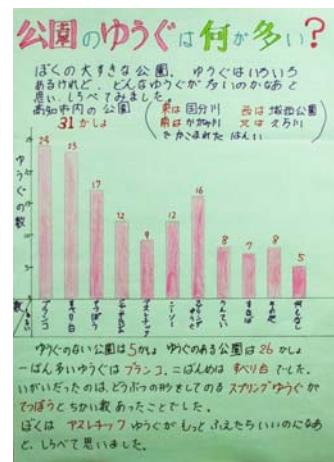 公園のゆうぐは何が多い?
ぼくの大すきな公園。ゆうぐはいろいろ
あるけれど、どんなゆうぐが多いのかなあと
思い、しらべてみました。
高知市内の公園
31かしょ
(東は国分川 西は
南はかがみ川 北は久万川
でかこまれたはんい)
ゆうぐの数
23
17
12
9
12
16
8
7
8
5
ブランコ
すべり台
てつぼう
アスレチック
シーソー
スプリングゆうぐ
うんてい
その他
何もなし
ゆうぐのない公園は5かしょ ゆうぐのある公園は26かしょ
一ばん多いゆうぐはブランコ、二ばんめはすべり台でした。
いがいだったのは、どうぶつの形をしてのるスプリングゆうぐが
てつぼうとちかい数あったことでした。
ぼくはアスレチックゆうぐがもっとふえたらいいのになあ
と、しらべて思いました。